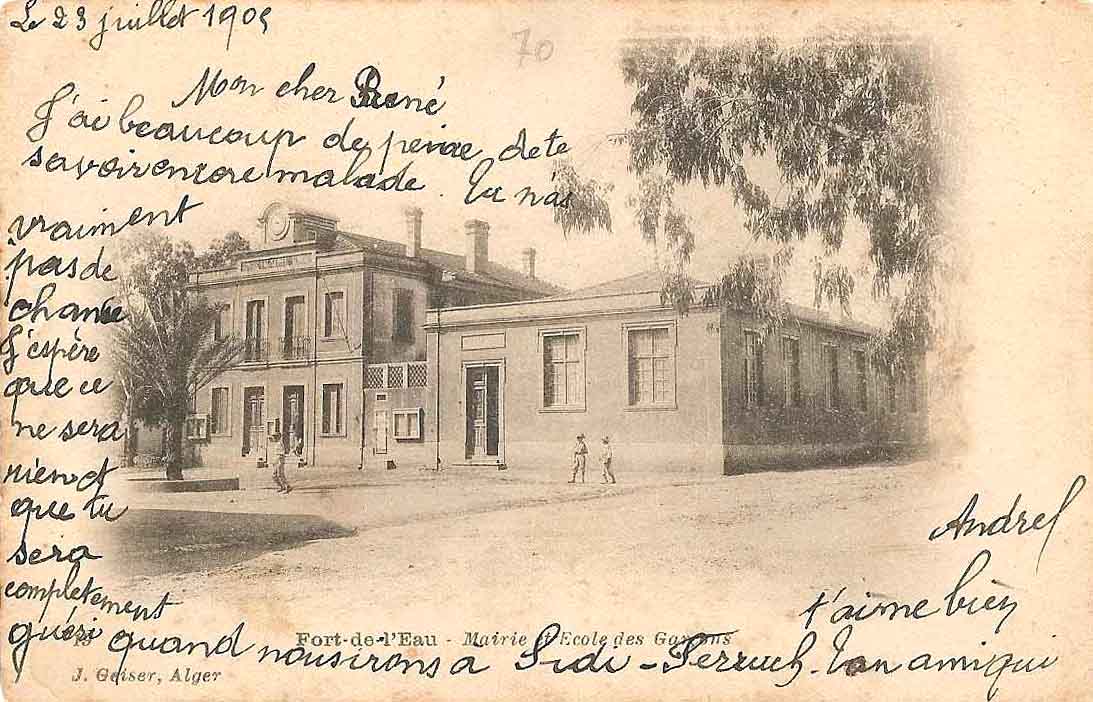 Le 23 juillet 1905
70
Mon cher René
J'ai beaucoup de peine de te
savoir encore malade. Tu n'as
vraiment
pas de
chance
J'espère
que ce
ne sera
rien et
que tu
sera
completement
guéri quand nous irons à Sidi-Ferruch. Ton ami qui
t'aime bien
André
Fort-de-l'Eau - Mairie et Ecole des Garçons
J. Geiser, Alger